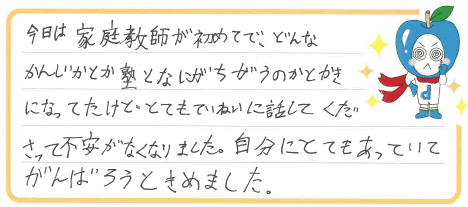 今日は家庭教師が初めてで、どんな
かんじかとか塾となにがちがうのかとかき
になってたけど、とてもていねいに話してくだ
さって不安がなくなりました。自分にとてもあっていて
がんばろうときめました。
d